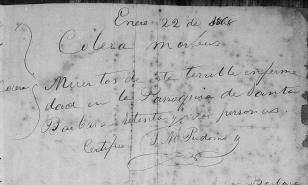 Enero 22 de 1868
Colera morbus
Muertos de esta terrible enferme
dad en la Parroquia de Santa
Barbara setenta y dos personas
Certifico